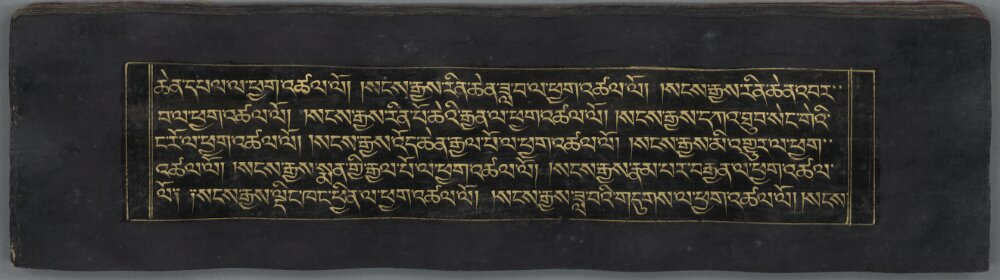 ཆེན་དཔལ་ལ་ཕྱག་འཚལ་ལོ། །སངས་རྒྱས་རིན་ཆེན་ཟླ་བ་ལ་ཕྱག་འཚལ་ལོ། །སངས་རྒྱས་རིན་ཆེན་འབར་
བ་ལ་ཕྱག་འཚལ་ལོ། །སངས་རྒྱས་རིན་པོ་ཆེའི་རྒྱན་ལ་ཕྱག་འཚལ་ལོ། །སངས་རྒྱས་དཀའ་ཐུབ་སེང་གེའི་
ང་རོ་ལ་ཕྱག་འཚལ་ལོ། །སངས་རྒྱས་འོད་ཆེན་རྒྱལ་པོ་ལ་ཕྱག་འཚལ་ལོ། །སངས་རྒྱས་མི་འགྱུར་ལ་ཕྱག་
འཚལ་ལོ། །སངས་རྒྱས་སྨན་གྱི་རྒྱལ་པོ་ལ་ཕྱག་འཚལ་ལོ། །སངས་རྒྱས་རྣམ་པར་བརྒྱན་ལ་ཕྱག་འཚལ་
ལོ། །སངས་རྒྱས་ལྡིང་བང་ཕྱིན་ལ་ཕྱག་འཚལ་ལོ། །སངས་རྒྱས་ཟླ་བའི་གདུགས་ལ་ཕྱག་འཚལ་ལོ། །སངས་